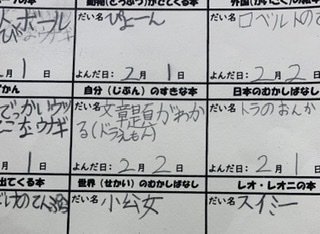 の本
動物(どうぶつ)がでてくる本
外国(がいこく)の絵本
ボール
びょーウナギ
だい名 ぴょーん
だい名 ロベルトの
月 1 日
よんだ日: 2 月 1 日
よんだ日: 2 月 2
ずかん
自分(じぶん)のすきな本
日本のむかしばなし
でっかいウツ
こなウナギ
だい名 文章題がわか
る(ドラえもん)
だい名 トラのおんが
月 1 日
よんだ日: 2 月 2 日
よんだ日: 2 月 1
出てくる本
世界(せかい)のむかしばなし
レオ・レオニの本
だい名 小公女
だい名 スイミー